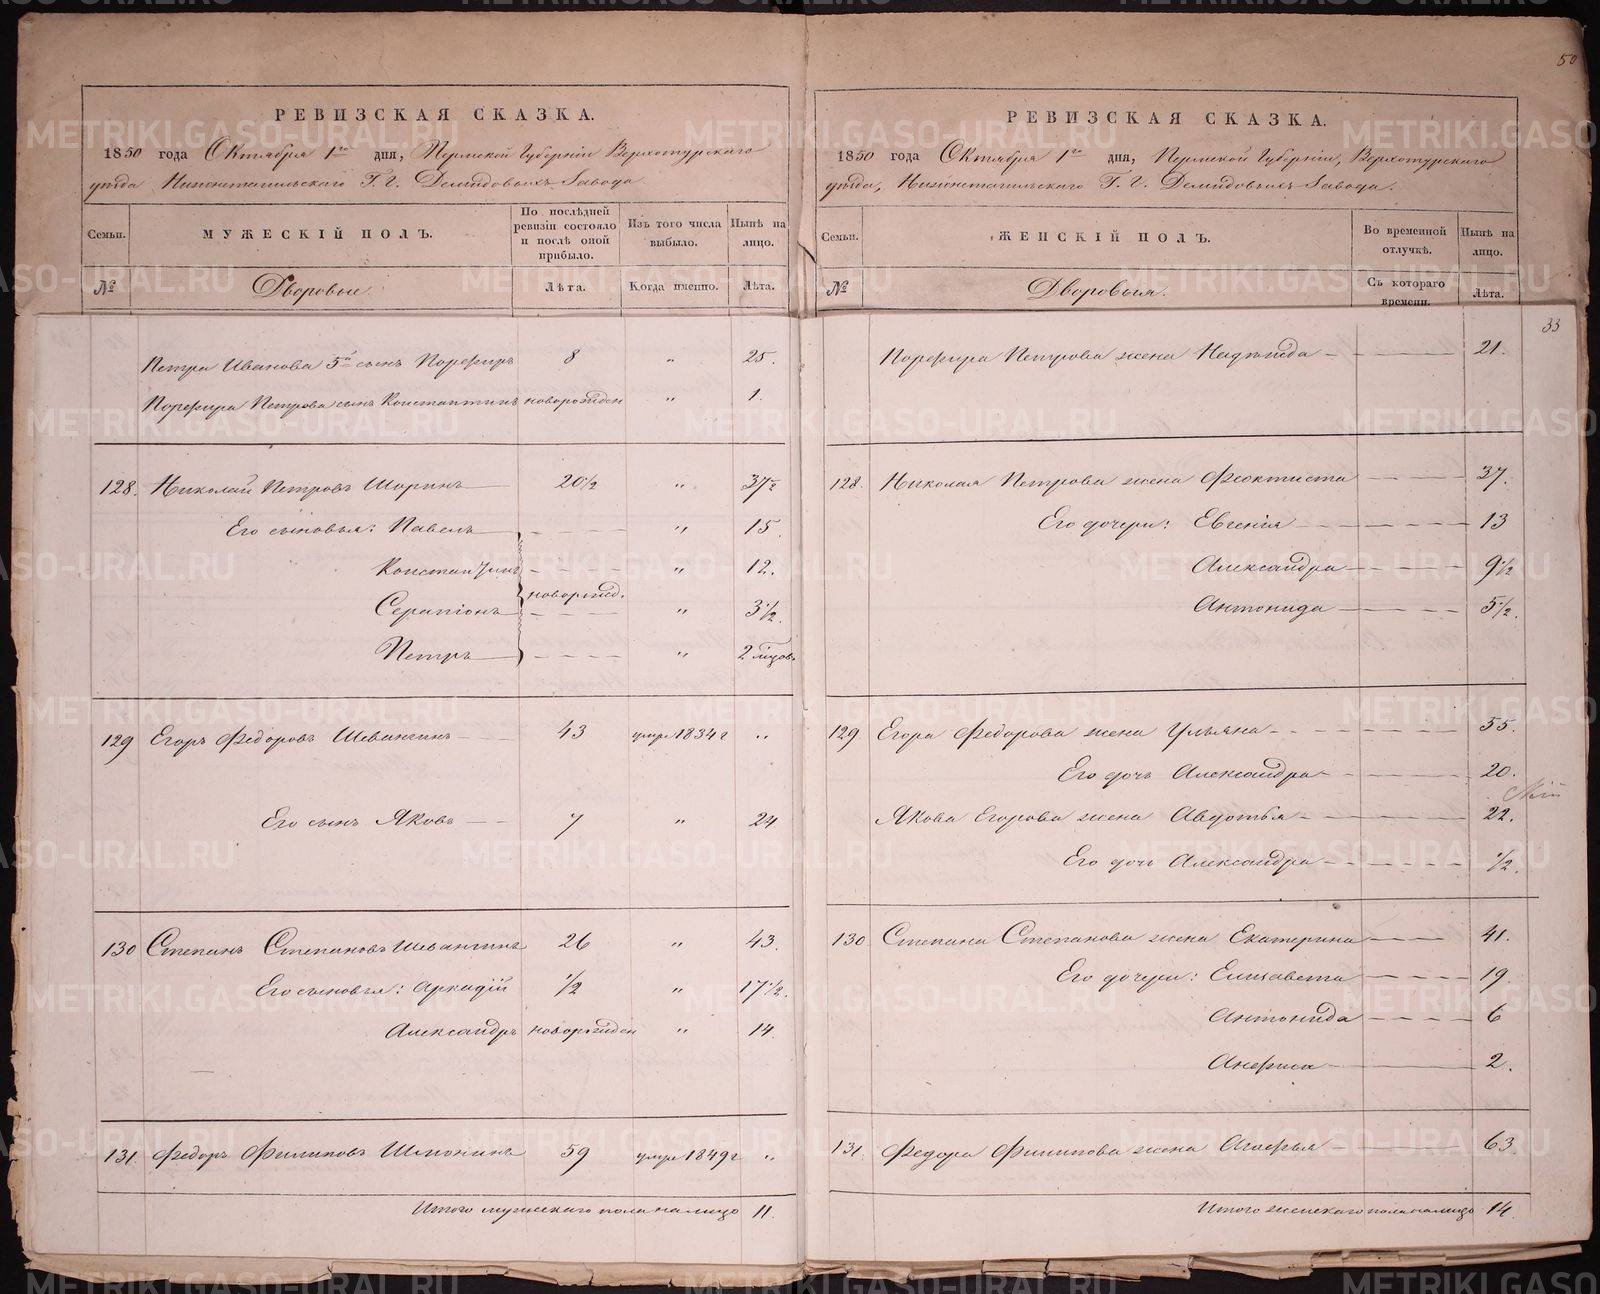 50
РЕВИЗСКАЯ СКАЗКА.
1850 года Октября 1го дня, Пермской Губернiи Верхотурскаго
уѣзда Нижнетагильскаго Г. г. Демидовыхъ Завода
Семьи.
МУЖЕСКІЙ ПОЛЪ.
По послѣдней ревизіи состояло и послѣ оной прибыло.
Изъ того числа выбыло.
Нынѣ на лицо.
№ Дворовые. Лѣта. Когда именно. Лѣта.
Петра Иванова 5й сынъ Порфиръ 8 " 25.
Порфира Петрова сынъ Константинъ новорожден " 1.
128. Николай Петровъ Шоринъ 20½ " 37½
Его сыновья: Павелъ " 15.
Константинъ " 12.
новорожд.
Серапіонъ " 3½.
Петръ " 2 мѣцов.
129 Егоръ Федоровъ Шевангинъ 43 умре 1834 г "
Его сынъ Яковъ 7 " 24
130 Степанъ Степановъ Шевангинъ 26 " 43.
Его сыновья: Аркадій ½ " 17½.
Александръ новорожден " 14.
131. Федоръ Филиповъ Шепонинъ 59 умре 1849 г "
Итого мужескаго пола на лицо 11.
РЕВИЗСКАЯ СКАЗКА.
1850 года Октября 1го дня, Пермской Губерніи, Верхотурскаго
уѣзда, Нижнетагильскаго Г. г. Демидовыхъ Завода.
Семьи.
ЖЕНСКІЙ ПОЛЪ.
Во временной отлучкѣ.
Нынѣ на лицо.
№ Дворовыя. Съ котораго времени. Лѣта.
33
Порфира Петрова жена Надежда 21.
128. Николая Петрова жена Феоктиста 37.
Его дочери: Евгенія 13
Александра 9½
Антонида 5½.
129. Егора Федорова жена Ульяна 55.
Его дочь Александра 20.
Якова Егорова жена Авдотья 22.
Его дочь Александра ½.
130. Степана Степанова жена Екатерина 41.
Его дочери: Елисавета 19
Антонида 6
Анфиса 2.
131. Федора Филипова жена Агафья 63.
Итого женскаго пола на лицо 14.
METRIKI.GASO-URAL.RU